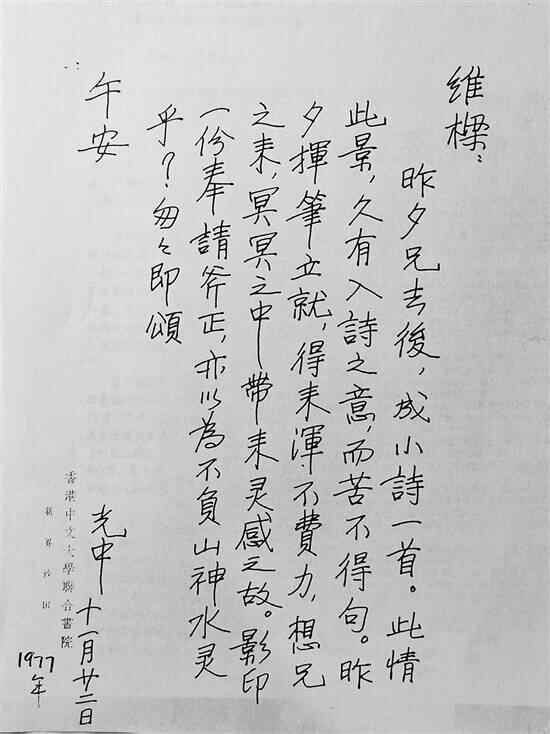 維樑：
昨夕兄去後，成小詩一首。此情
此景，久有入詩之意，而苦不得句。昨
夕揮筆立就，得来渾不費力，想兄
之来，冥冥之中带来灵感之故。影印
一份奉請斧正，亦以為不負山神水灵
乎？匆匆即頌
午安
光中 十一月廿二日
香港中文大學聯合書院
1977年